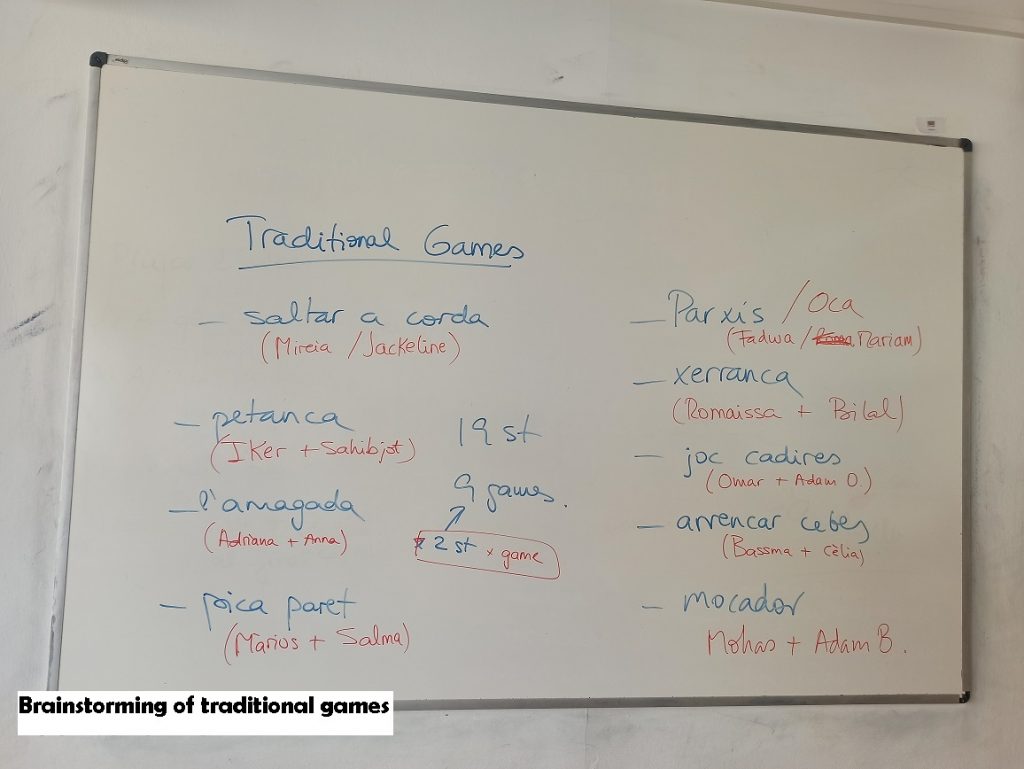 Traditional Games
– saltar a corda
(Mireia / Jackeline)
– petanca
(Iker + Sahibjot)
– l'amagada
(Adriana + Anna)
– pica paret
(Marius + Salma)
19 st
9 games.
2 st x game
– Parxís / Oca
(Fadwa / Mariam)
– xerranca
(Romaissa + Bilal)
– joc cadires
(Omar + Adam O.)
– arrencar cebes
(Bassma + Cèlia)
– mocador
Mohas + Adam B.
Brainstorming of traditional games